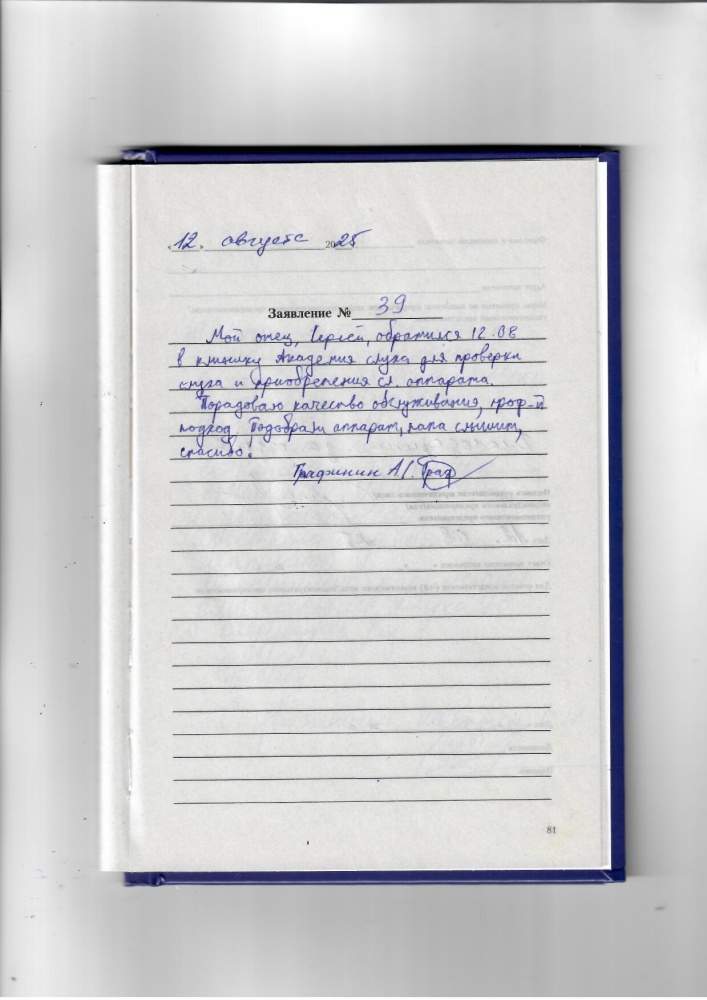 12. августа 2025
Заявление № 39
Мой отец, Сергей, обратился 12.08
в клинику Академия слуха для проверки
слуха и приобретения сл. аппарата.
Порадовало качество обслуживания, проф-й
подход. Подобрали аппарат, папа слышит,
спасибо!
А.
81